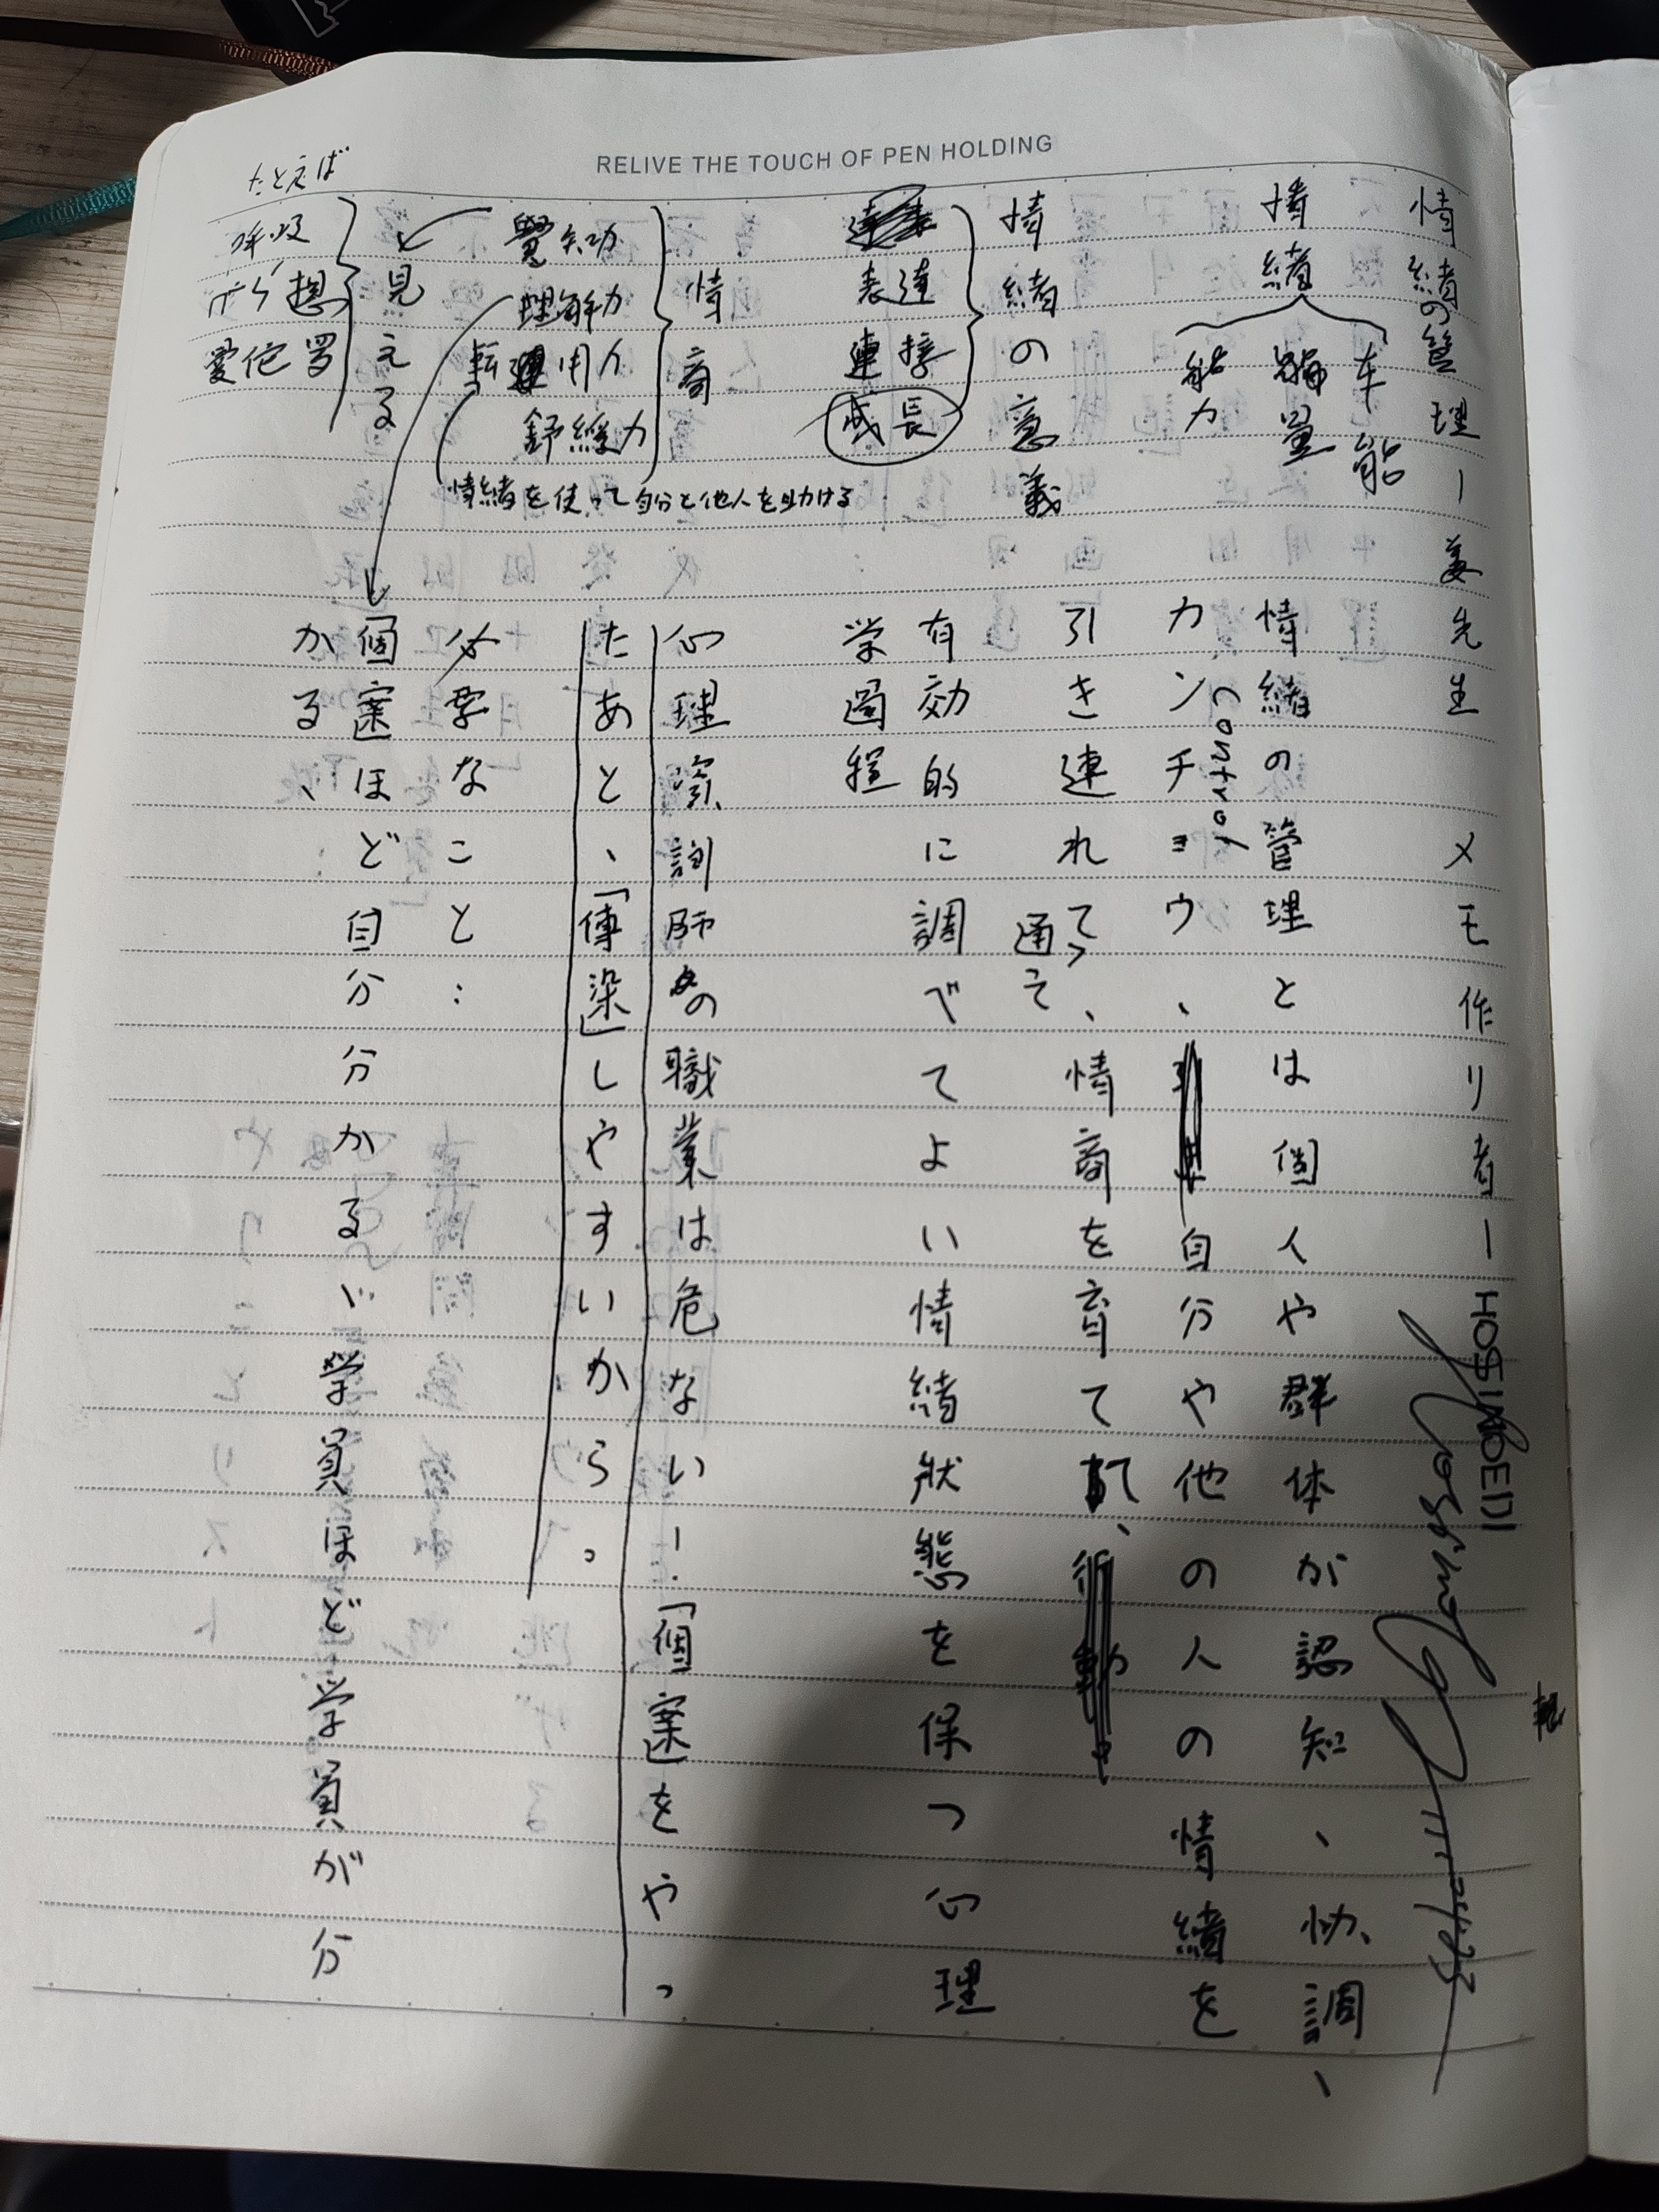 RELIVE THE TOUCH OF PEN HOLDING
情緒の管理ー姜先生 メモ作り者ーHOSIMOEDI
情緒
本能
能量
能力
情緒の管理とは個人や群体が認知、协、調、
カンチョウ、自分や他の人の情緒を
Control
引き連れて、情商を育て、
通って
有効的に調べてよい情緒状態を保つ心理
学圖程
情緒の意義
表達
連接
成長
情商
覺知力
理解力
転運用力
舒緩力
情緒を使って自分と他人を助ける
見える
たとえば
呼吸
心理咨詢師の職業は危ない！「個案」をやっ
たあと、「傳染」しやすいから。
必要なこと：
個案ほど自分分かるい学員ほど学員が分
かる、